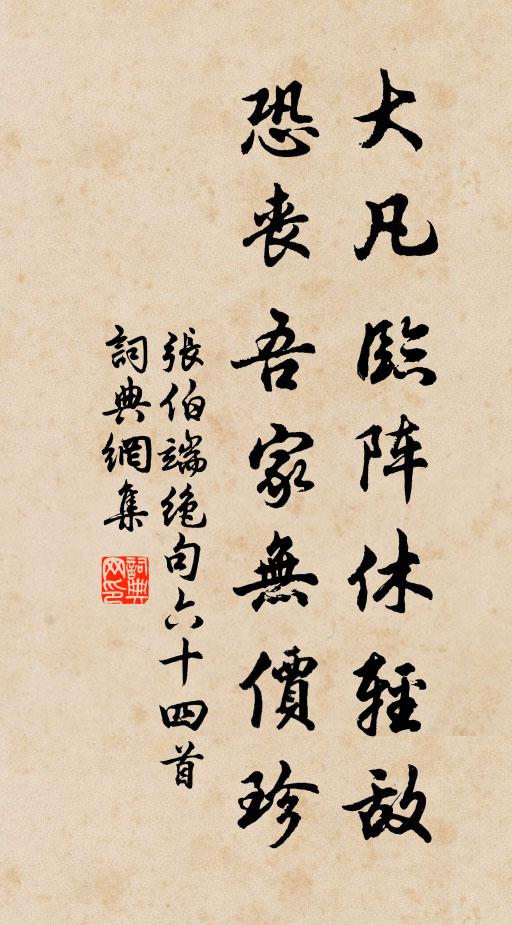 大凡臨阵休輕敌
恐丧吾家無價珍
張伯端绝句六十四首
詞典網集
詞典网印